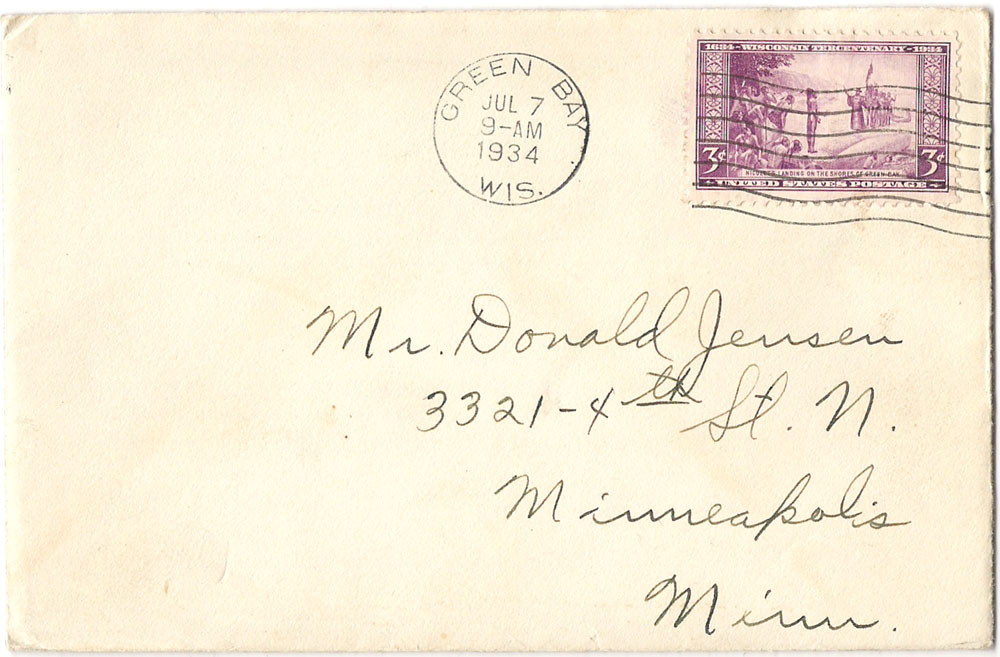 GREEN BAY
JUL 7
9-AM
1934
WIS.
1634-WISCONSIN TERCENTENARY-1934
3¢ 3¢
NICOLET'S LANDING ON THE SHORES OF GREEN BAY
UNITED STATES POSTAGE
Mr. Donald Jensen
3321-4th St. N.
Minneapolis
Minn.